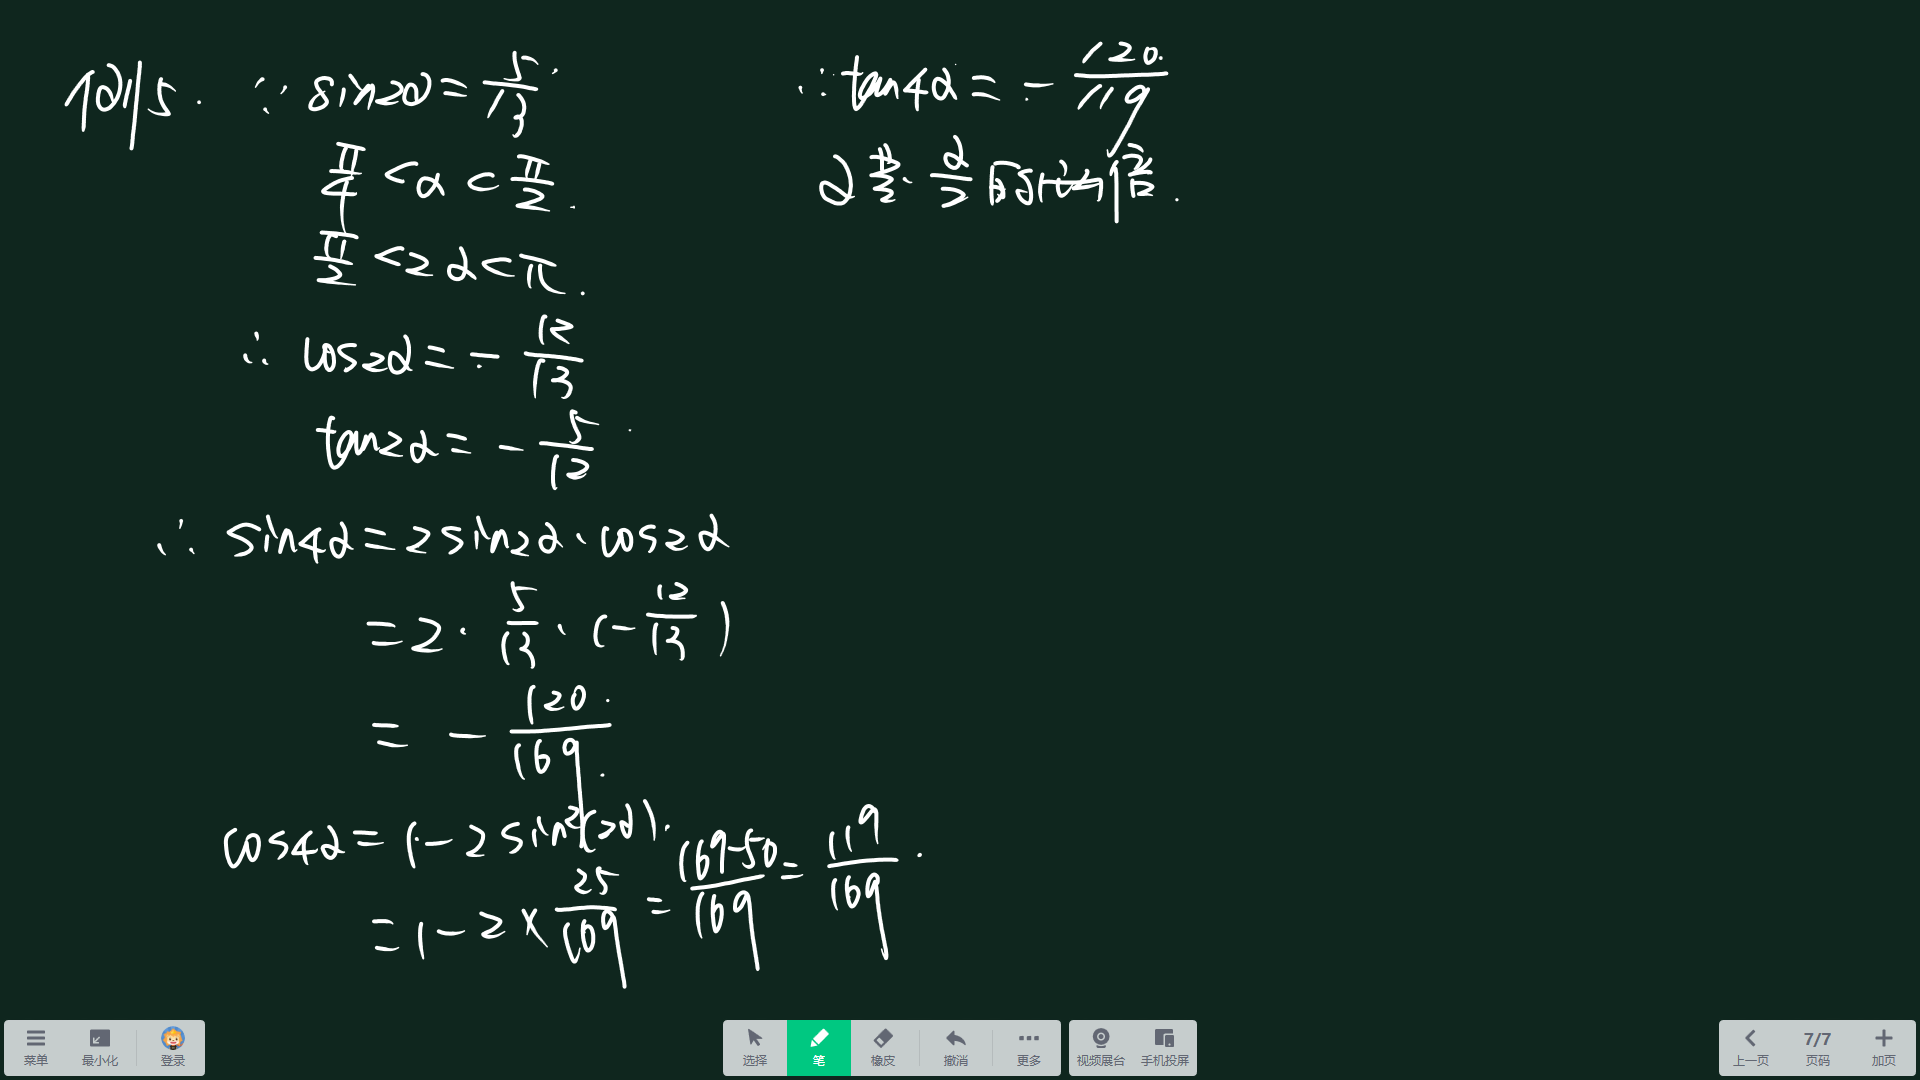 例5. ∵ sin2α = 5/13
π/4 < α < π/2.
π/2 < 2α < π.
∴ cos2α = - 12/13
tan2α = - 5/12
∴ sin4α = 2sin2α · cos2α
= 2 · 5/13 · (- 12/13)
= - 120/169.
cos4α = 1 - 2sin²(2α).
= 1 - 2 × 25/169 = 169-50/169 = 119/169.
∴ tan4α = - 120/119
α/2 倍.
菜单 最小化 登录 选择 笔 橡皮 撤消 更多 视频展台 手机投屏 上一页 7/7 页码 加页